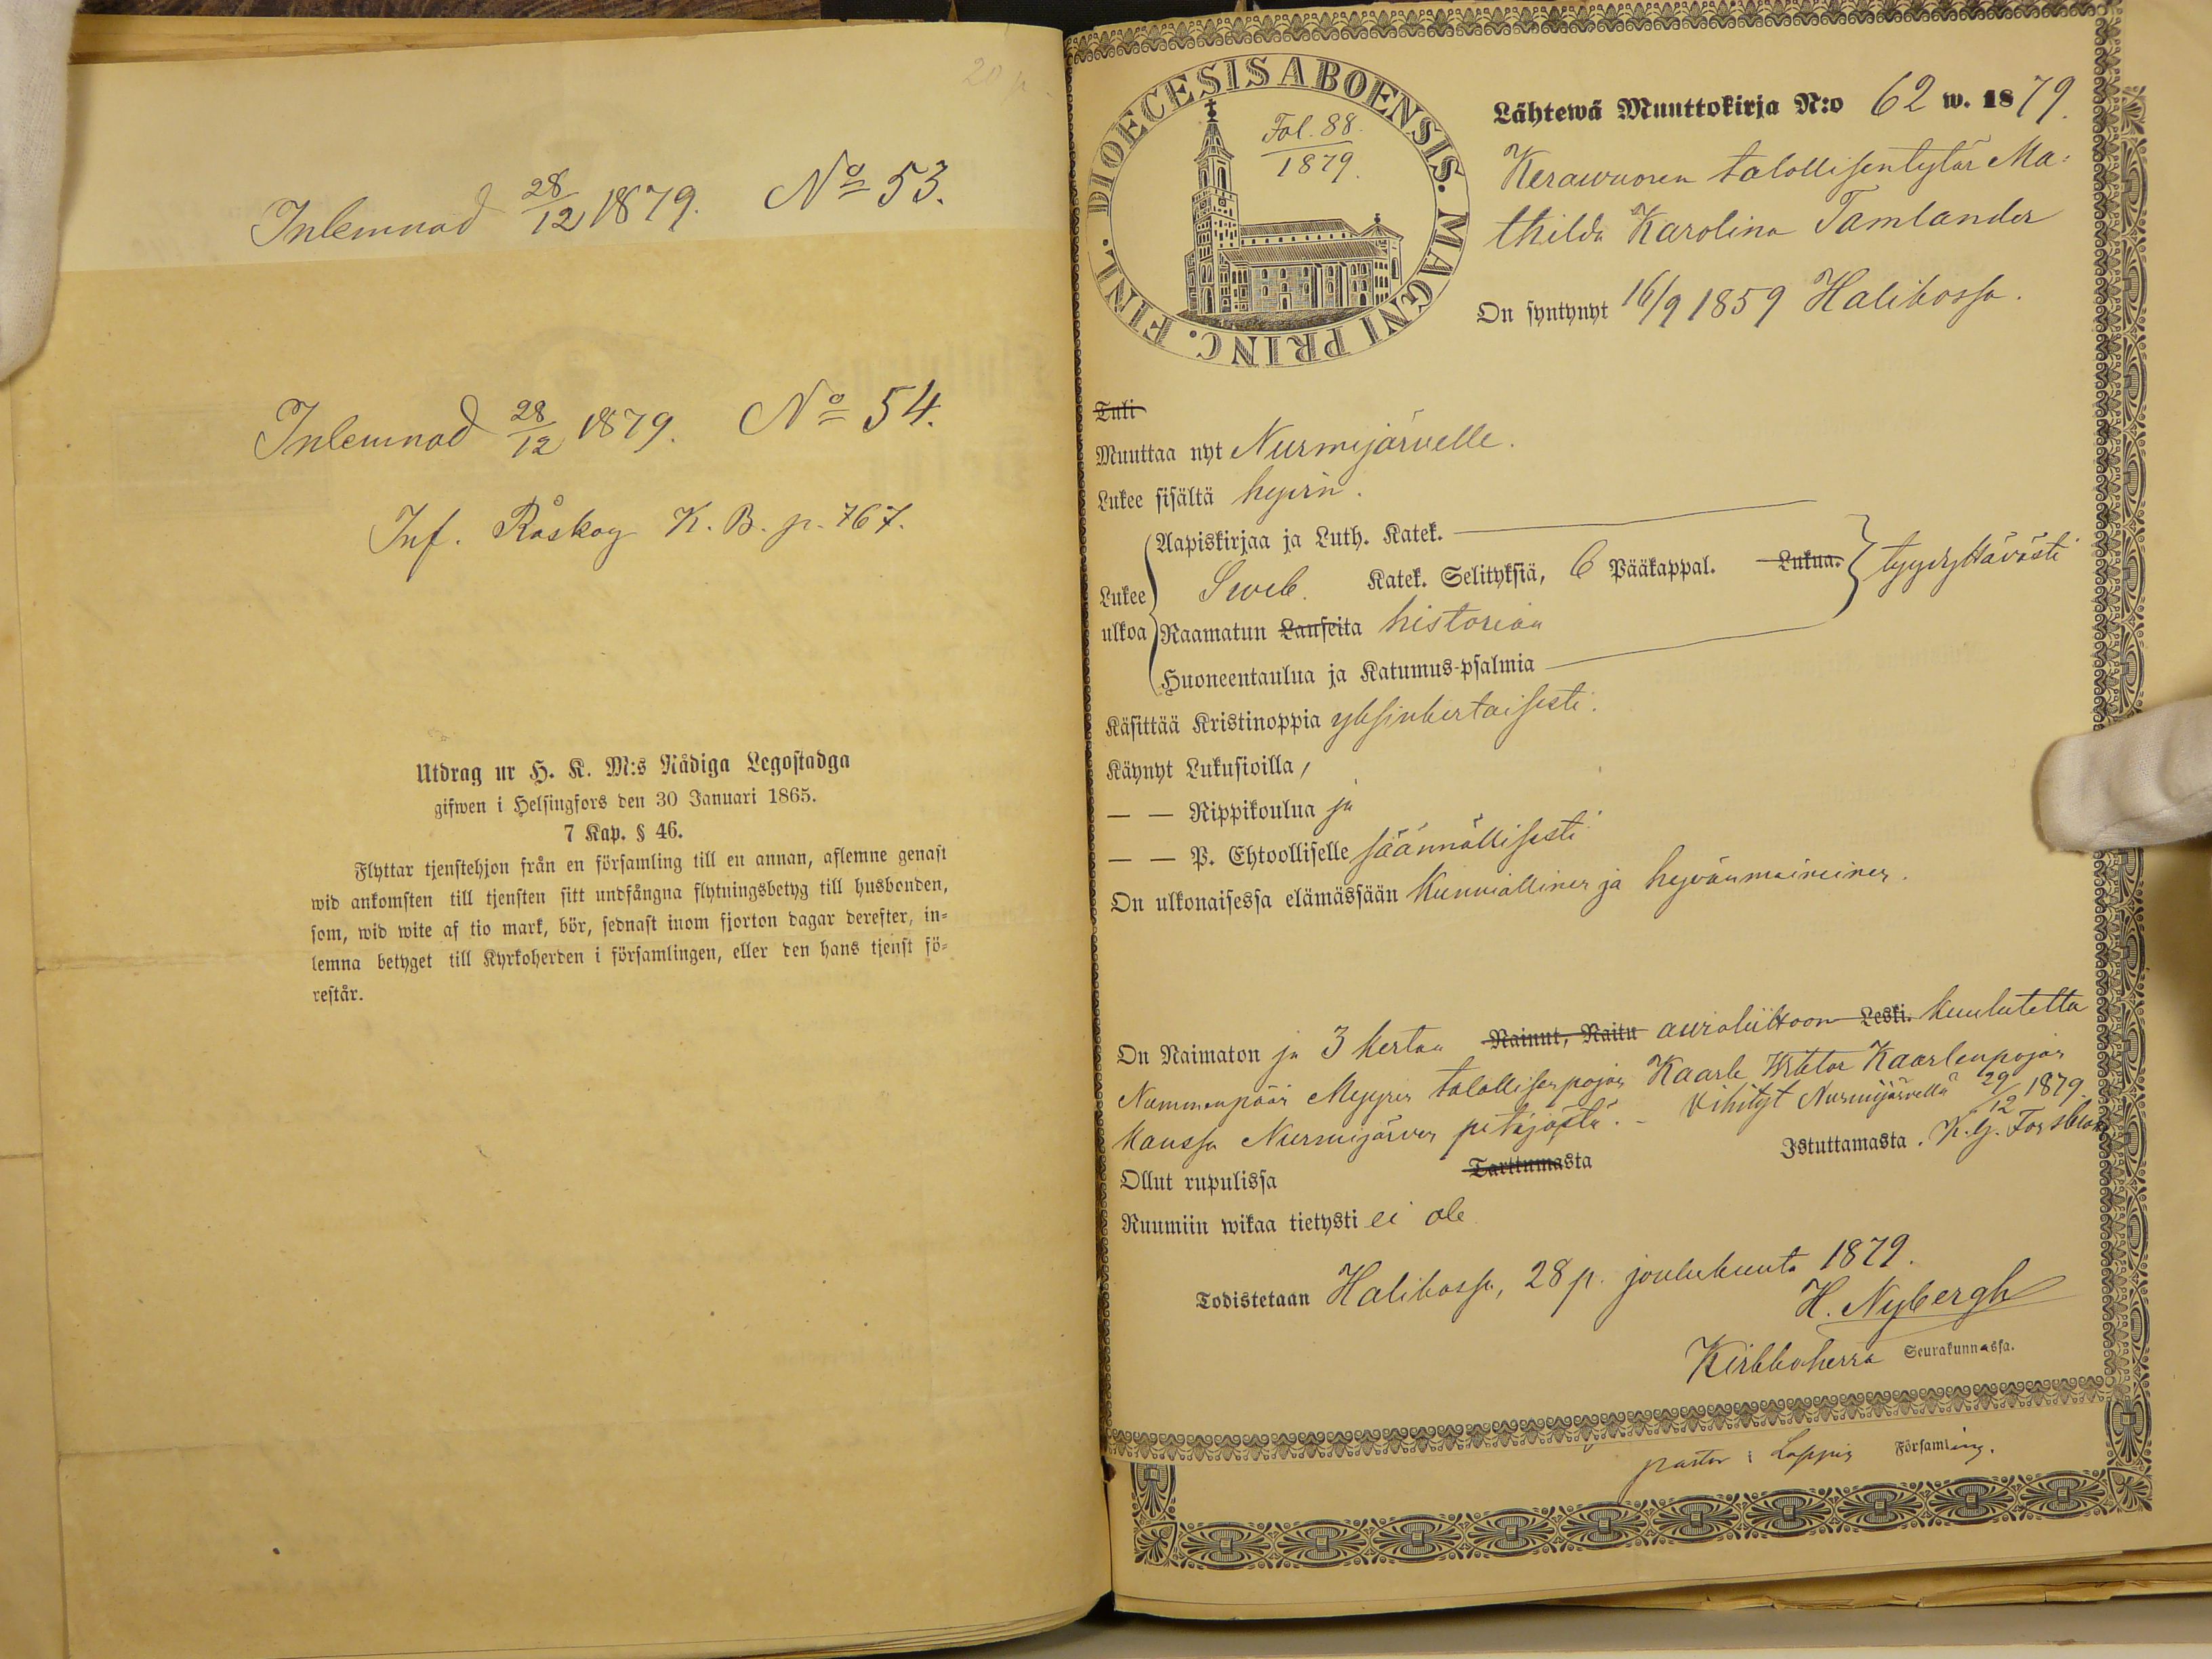 20 p.
Inlemnad 28/12 1879. No 53.
Inlemnad 28/12 1879. No 54.
Inf. Råskog K. B. p. 767.
Utdrag ur H. K. M:s Nådiga Legostadga
gifwen i Helsingfors den 30 Januari 1865.
7 Kap. § 46.
Flyttar tjenstehjon från en församling till en annan, aflemne genast
wid ankomsten till tjensten sitt undfångna flytningsbetyg till husbonden,
som, wid wite af tio mark, bör, sednast inom fjorton dagar derefter, in-
lemna betyget till Kyrkoherden i församlingen, eller den hans tjenst fö-
restår.
DIOECESIS ABOENSIS. MAGNI PRINC. FINL.
Fol. 88.
1879.
Lähtewä Muuttokirja N:o 62 w. 1879.
Kerawuoren talollisentytär Ma-
thilda Karolina Tamlander
On syntynyt 16/9 1859 Halikossa.
Tuli
Muuttaa nyt Nurmijärvelle.
Lukee sisältä hyvin.
Aapiskirjaa ja Luth. Katek.
Lukee Sweb. Katek. Selityksiä, 6 Pääkappal. Lukua. tyydyttävästi
ulkoa Raamatun Lauseita historian
Huoneentaulua ja Katumus-psalmia
Käsittää Kristinoppia yksinkertaisesti.
Käynyt Lukusioilla,
— — Rippikoulua ja
— — P. Ehtoolliselle säännöllisesti
On ulkonaisessa elämässään kunniallinen ja hyvänmaineinen.
On Naimaton ja 3 kertaa Nainut, Naitu avioliittoon Leski. kuulutettu
Nummenpään Myyrin talollisenpojan Kaarle Wiktor Kaarlenpojan
kanssa Nurmijärven pitäjästä. - Vihityt Nurmijärvellä 29/12 1879.
Ollut rupulissa Tarttumasta Istuttamasta. K. G. Forsblom
Ruumiin wikaa tietysti ei ole
Todistetaan Halikossa, 28 p. joulukuuta 1879.
H. Nybergh
Kirkkoherra Seurakunnassa.
pastor i Loppis Församling.